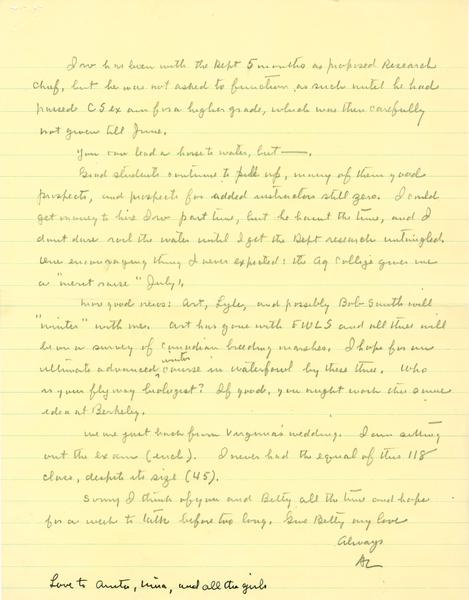 Irv has been with the Dept 5 months as proposed Research
Chief, but he was not asked to function as such until he had
passed C S exam for a higher grade, which was then carefully
not given till June.
You can lead a horse to water, but —.
Grad students continue to pull up, many of them good
prospects, and prospects for added instructors still zero. I could
get money to hire Irv part time, but he hasnt the time, and I
dont dare roil the water until I get the Dept research untangled.
One encouraging thing I never expected: the Ag College gives me
a "merit raise" July 1.
More good news: Art, Lyle, and possibly Bob Smith will
"winter" with me. Art has gone with FWLS and all three will
be on a survey of Canadian breeding marshes. I hope for an
ultimate advanced winter course in waterfowl by these three. Who
is your flyway biologist? If good, you might work the same
idea at Berkeley.
We are just back from Virginia's wedding. I am sitting
out the exam (encl.). I never had the equal of this 118
class, despite its size (45).
Sonny I think of you and Betty all the time and hope
for a week to talk before too long. Give Betty my love
Always
AL
Love to Anita, Nina, and all the girls